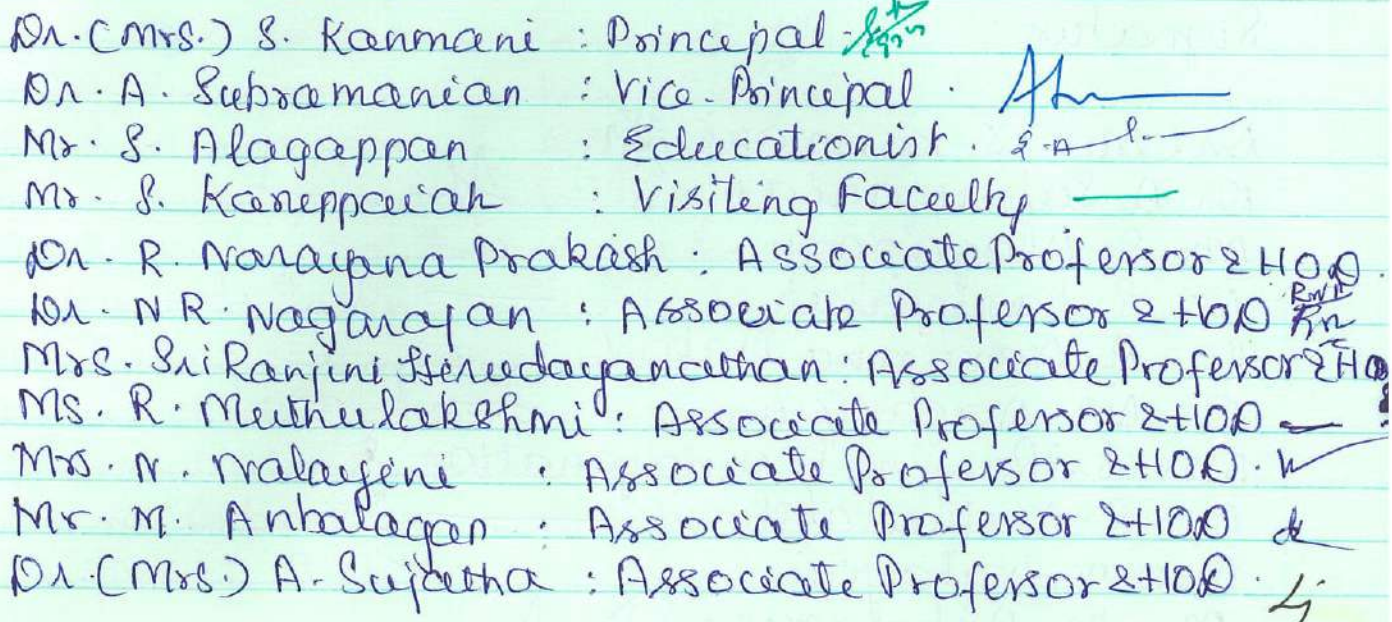 Dr. (Mrs.) S. Kanmani : Principal
Dr. A. Subramanian : Vice-Principal.
Mr. S. Alagappan : Educationist.
Mr. S. Karuppaiah : Visiting Faculty
Dr. R. Narayana Prakash : Associate Professor & HOD.
Dr. NR. Nagarajan : Associate Professor & HOD
Mrs. Sri Ranjini : Associate Professor & HO
Ms. R. Muthulakshmi : Associate Professor & HOD
Mrs. N. Nalayini : Associate Professor & HOD.
Mr. M. Anbalagan : Associate Professor & HOD
Dr. (Mrs.) A. Sujatha : Associate Professor & HOD.